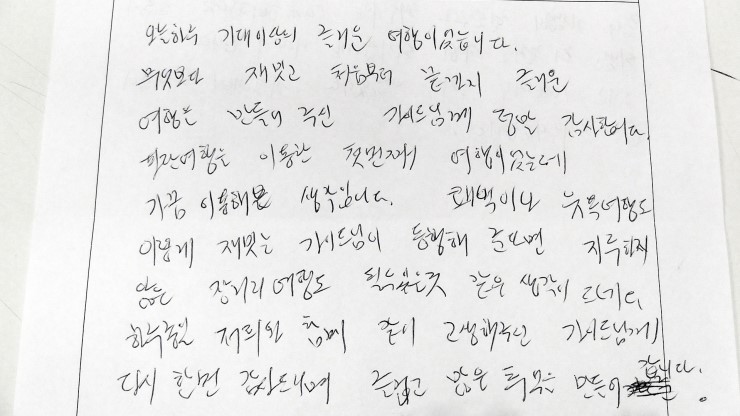 오늘하루 기대이상의 즐거운 여행이었습니다.
무엇보다 재밌고 처음부터 끝까지 즐거운
여행을 만들어 주신 가이드님께 정말 감사합니다.
여행을 이용한 첫번째 여행이었는데
가끔 이용해볼 생각입니다. 태백이나 여행도
이렇게 재밌는 가이드님이 동행해 준다면 지루하지
않은 장거리 여행도 될수있을것 같은 생각이 드네요.
하루종일 저희와 함께 같이 고생해주신 가이드님께
다시 한번 감사드리며 즐겁고 많은 추억을 만들어 갑니다.